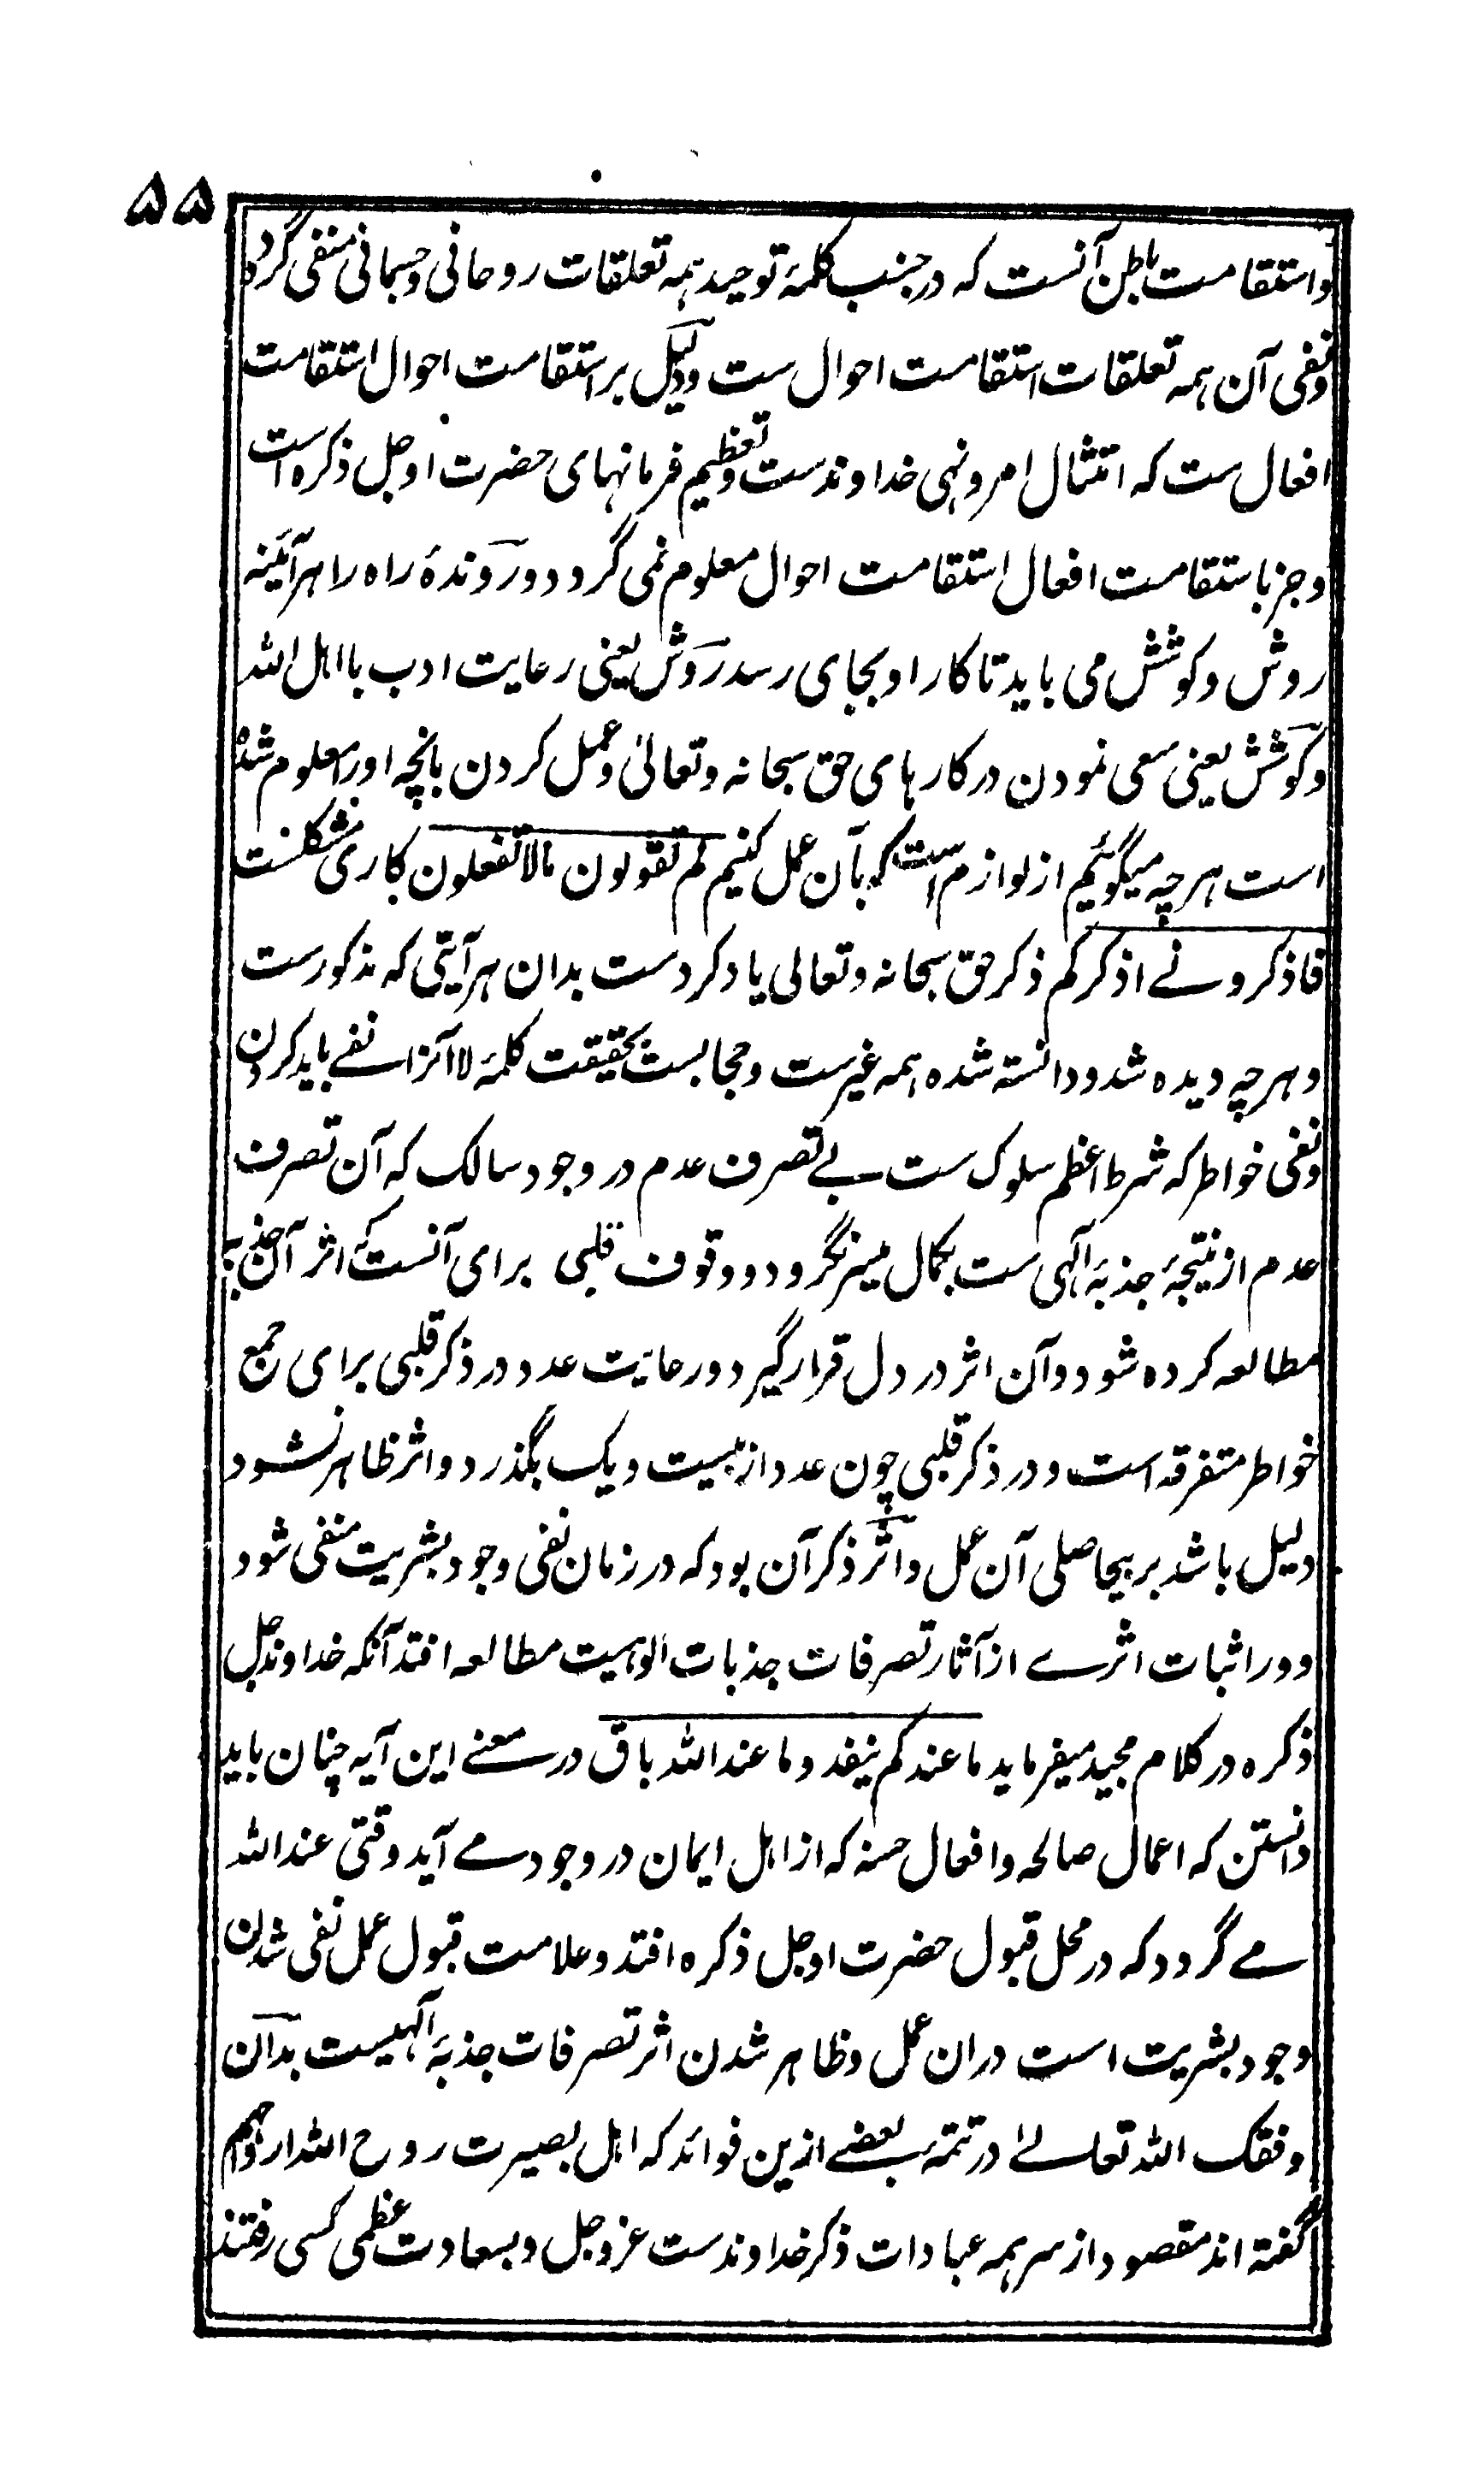 ۵۵
و استقامت باطن آنست که در جنب کلمۀ توحید همه تعلقات روحانی و جسمانی منفی گردد
و نفی آن همه تعلقات استقامت احوال ست و دلیل بر استقامت احوال استقامت
افعال ست که امتثال امر و نهی خداوندست و تعظیم فرمانهای حضرت او جل ذکره است
و جز باستقامت افعال استقامت احوال معلوم نمی گردد و روندۀ راه را هر آئینه
روش و کوشش می باید تا کار او بجای رسد روش یعنی رعایت ادب با اهل الله
و کوشش یعنی سعی نمودن در کارهای حق سبحانه و تعالی و عمل کردن بآنچه او را معلوم شده
است هر چه میگوئیم از لوازم است که بآن عمل کنیم لم تقولون مالا تفعلون کاری مشکلست
فاذکرونے اذکرکم ذکر حق سبحانه و تعالی یاد کردست بدان هر آیتی که مذکورست
و هر چه دیده شد و دانسته شد همه غیرست و حجابست بحقیقت کلمۀ لا آنرا نفے باید کردن
و نفی خواطر که شرط اعظم سلوک ست بے تصرف عدم در وجود سالک که آن تصرف
عدم از نتیجۀ جذبۀ آلهی ست بکمال میسر نگردد و وقوف قلبی برای آنست که اثر آن جذبه
مطالعه کرده شود و آن اثر در دل قرار گیرد و رعایت عدد در ذکر قلبی برای جمع
خواطر متفرقه است و در ذکر قلبی چون عدد از بیست و یک بگذرد و اثر ظاهر نشود
دلیل باشد بر بیحاصلی آن عمل و اثر ذکر آن بود که در زمان نفی وجود بشریت منفی شود
و در اثبات اثرے از آثار تصرفات جذبات الوهیت مطالعه افتد آنکه خداوند جل
ذکره در کلام مجید میفرماید ما عندکم ینفد و ما عند الله باق در معنے این آیه چنان باید
دانستن که اعمال صالحه و افعال حسنه که از اهل ایمان در وجود مے آید وقتی عند الله
مے گردد که در محل قبول حضرت او جل ذکره افتد و علامت قبول عمل نفی شدن
وجود بشریت است دران عمل و ظاهر شدن اثر تصرفات جذبۀ آلهیست بدان
وفقک الله تعالے در تتمۀ بعضے ازین فوائد که اهل بصیرت روح الله ارواحهم
گفته اند مقصود از سر همه عبادات ذکر خداوندست عز و جل و بسعادت عظمی کسی رفتند